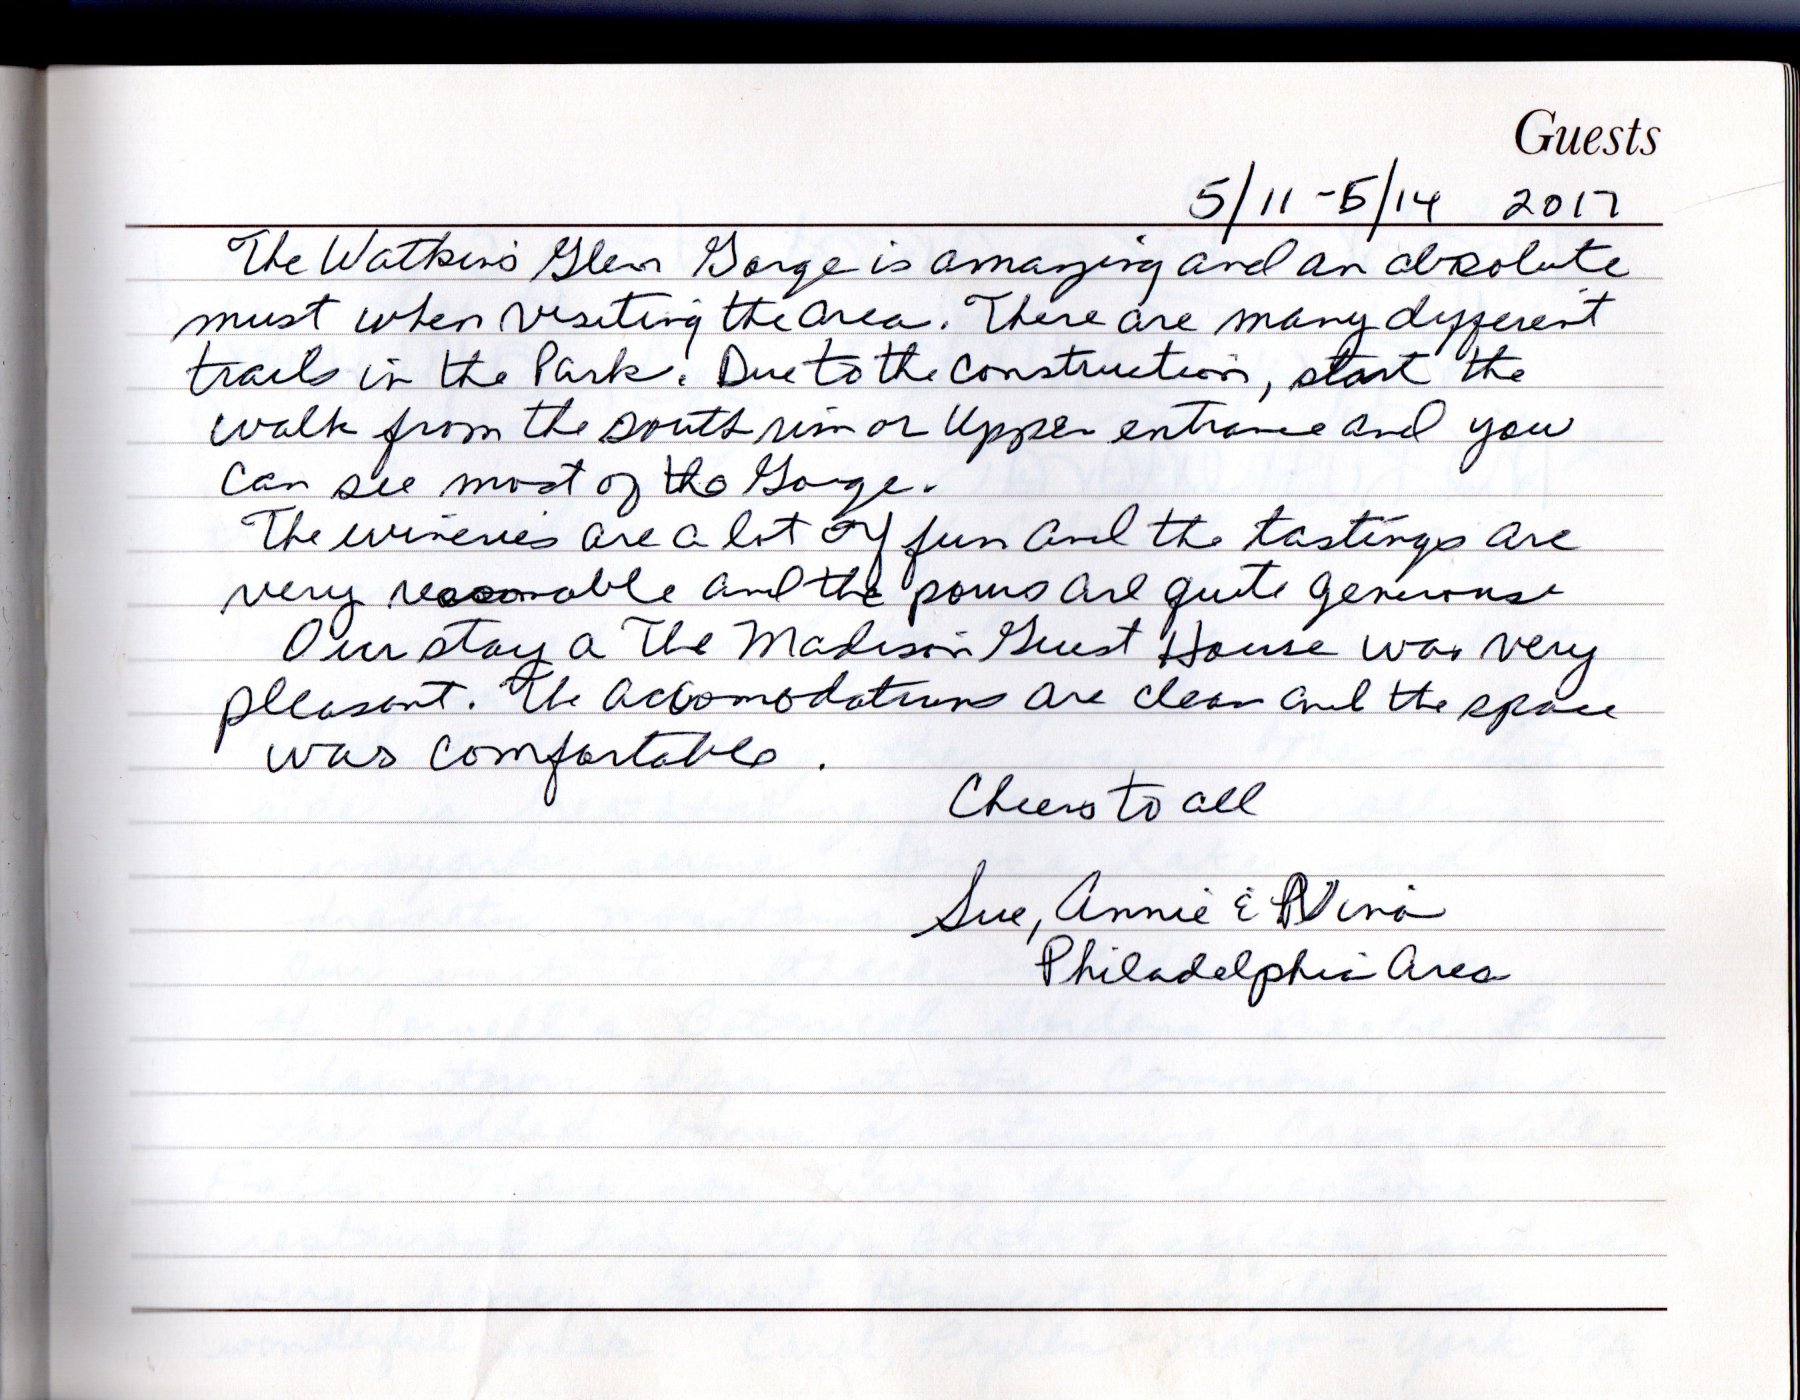 Guests
5/11 - 5/14 2017
The Watkins Glen Gorge is amazing and an absolute
must when visiting the area. There are many different
trails in the Park. Due to the construction, start the
walk from the south rim or Upper entrance and you
can see most of the Gorge.
The wineries are a lot of fun and the tastings are
very reasonable and the pours are quite generouse
Our stay a The Madison Guest House was very
pleasant. The accomodations are clean and the space
was comfortable.
Cheers to all
Sue, Annie & Nina
Philadelphia Area